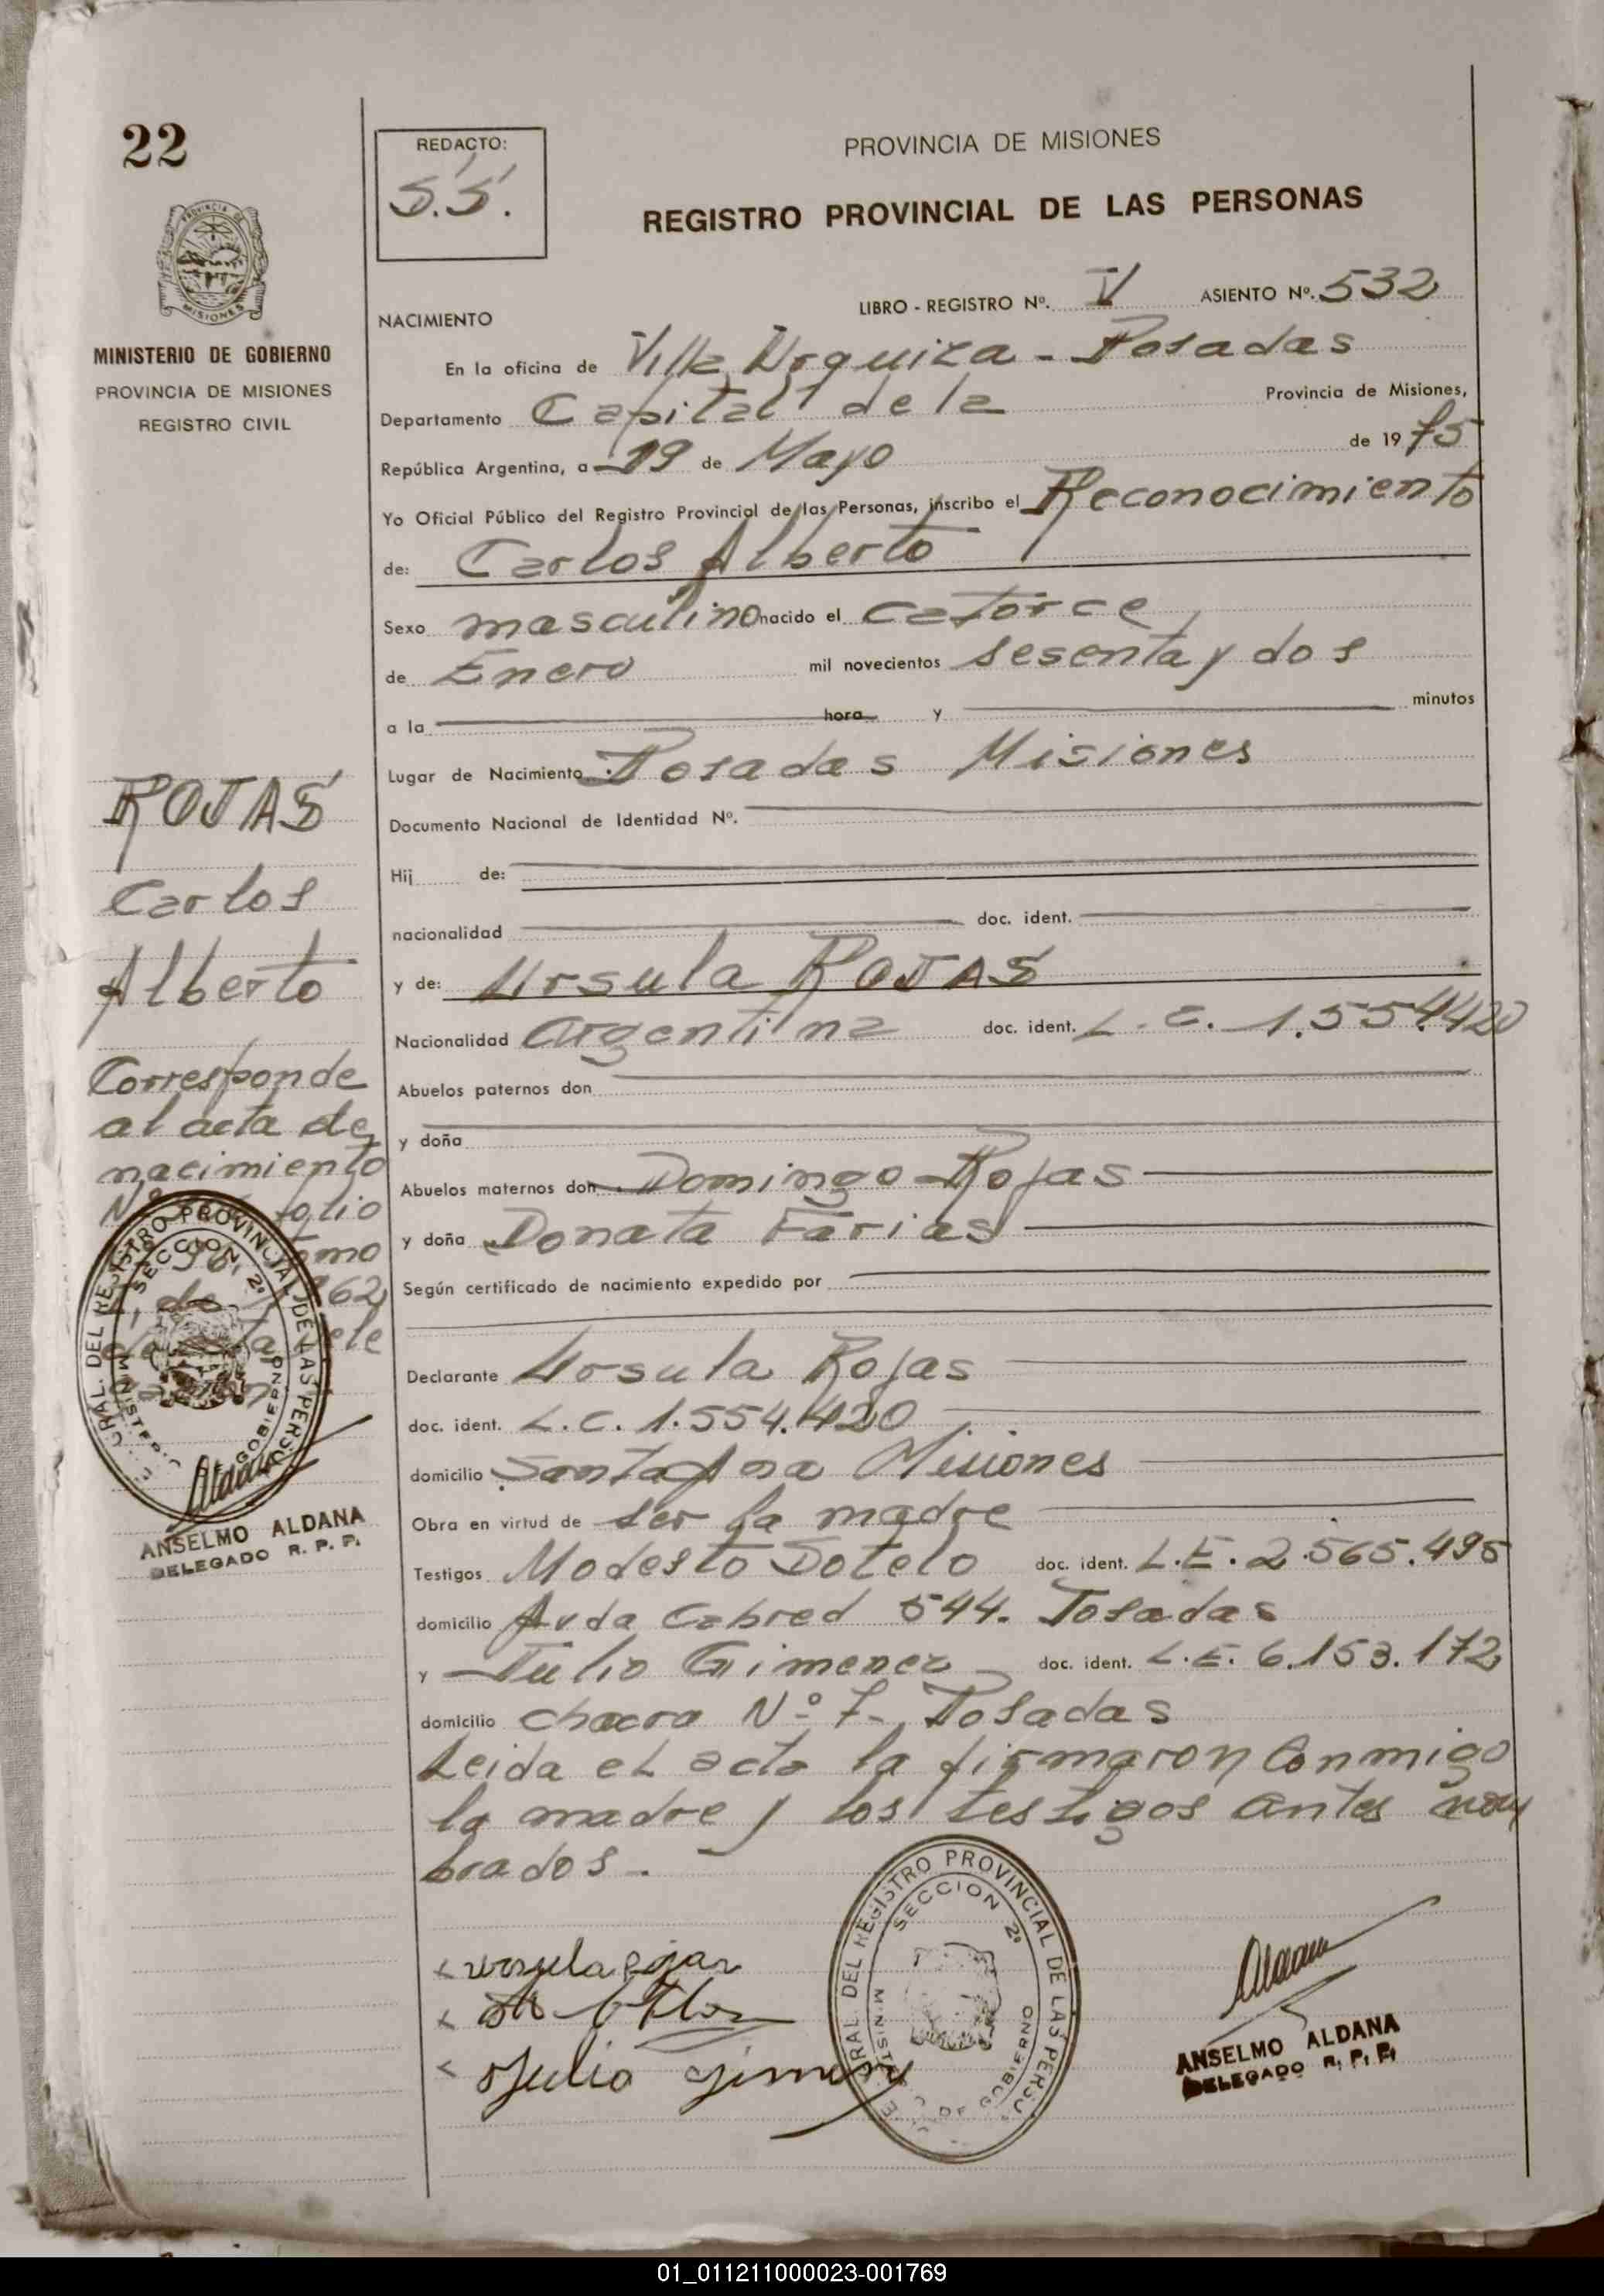 22
REDACTO:
S.S.
PROVINCIA DE MISIONES
REGISTRO PROVINCIAL DE LAS PERSONAS
MINISTERIO DE GOBIERNO
PROVINCIA DE MISIONES
REGISTRO CIVIL
LIBRO - REGISTRO Nº. V ASIENTO Nº. 532
NACIMIENTO
En la oficina de Villa Urquiza - Posadas
Departamento Capital de la Provincia de Misiones,
República Argentina, a 19 de Mayo de 1975
Yo Oficial Público del Registro Provincial de las Personas, inscribo el Reconocimiento
de: Carlos Alberto
Sexo masculino nacido el catorce
de Enero mil novecientos sesenta y dos
a la hora y minutos
Lugar de Nacimiento Posadas Misiones
Documento Nacional de Identidad Nº.
Hij de:
nacionalidad doc. ident.
y de: Ursula ROJAS
Nacionalidad argentina doc. ident. L.C. 1.554.420
Abuelos paternos don
y doña
Abuelos maternos don Domingo Rojas
y doña Donata Farias
Según certificado de nacimiento expedido por
Declarante Ursula Rojas
doc. ident. L.C. 1.554.420
domicilio Santa Ana Misiones
Obra en virtud de ser la madre
Testigos Modesto Sotelo doc. ident. L.E. 2.565.495
domicilio Avda Cabred 544. Posadas
y Julio Gimenez doc. ident. L.E. 6.153.172
domicilio chacra Nº 7- Posadas
Leida el acta la firmaron conmigo
la madre y los testigos antes nom
brados.-
ROJAS
Carlos
Alberto
Corresponde
al acta de
nacimiento
Nº folio
tomo
de 1962
GRAL. DEL REGISTRO PROVINCIAL DE LAS PERSO
SECCION 2º
MINISTERIO GOBIERNO
ANSELMO ALDANA
DELEGADO R. P. P.
ursula rojas
Julio Gimenez
GRAL. DEL REGISTRO PROVINCIAL DE LAS PERSO
SECCION 2º
MINISTERIO DE GOBIERNO
Aldana
ANSELMO ALDANA
DELEGADO R. P. P.
01_011211000023-001769